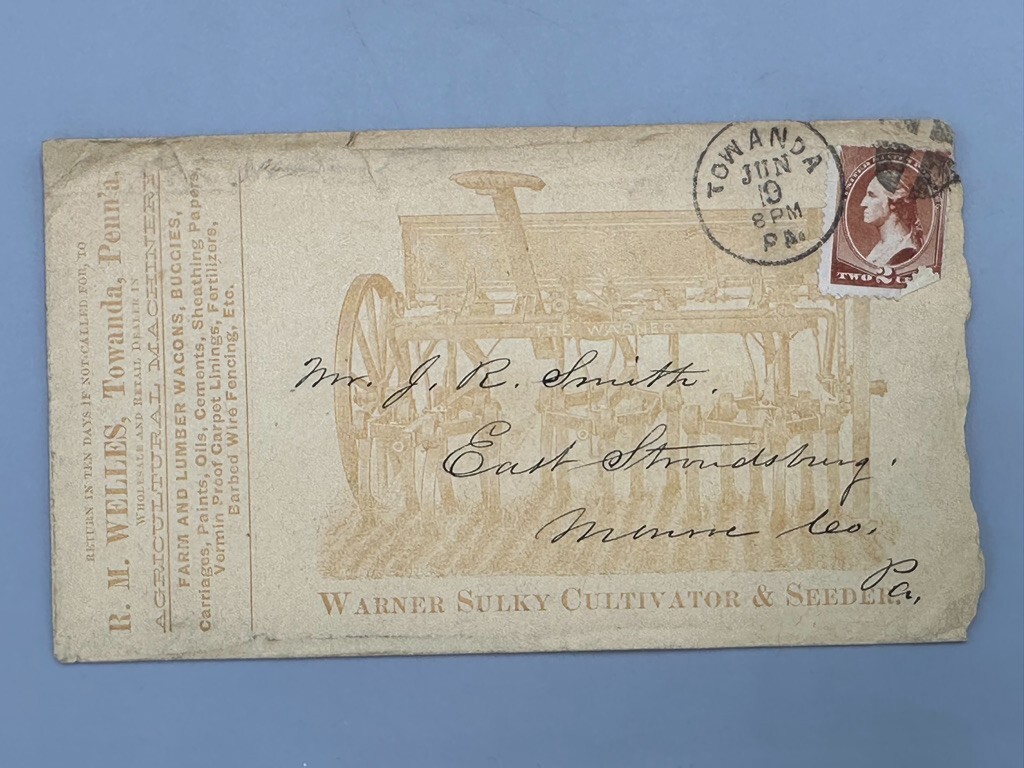 RETURN IN TEN DAYS IF NOT CALLED FOR, TO
R. M. WELLES, Towanda, Penn'a,
WHOLESALE AND RETAIL DEALER IN
AGRICULTURAL MACHINERY
FARM AND LUMBER WAGONS, BUGGIES,
Carriages, Paints, Oils, Cements, Sheathing Papers,
Vermin Proof Carpet Linings, Fertilizers,
Barbed Wire Fencing, Etc.
TOWANDA
JUN
8 PM
PA.
UNITED STATES
TWO 2
THE WARNER
Mr. J. R. Smith.
East Stroudsburg.
Monroe Co.
Pa,
WARNER SULKY CULTIVATOR & SEEDER.